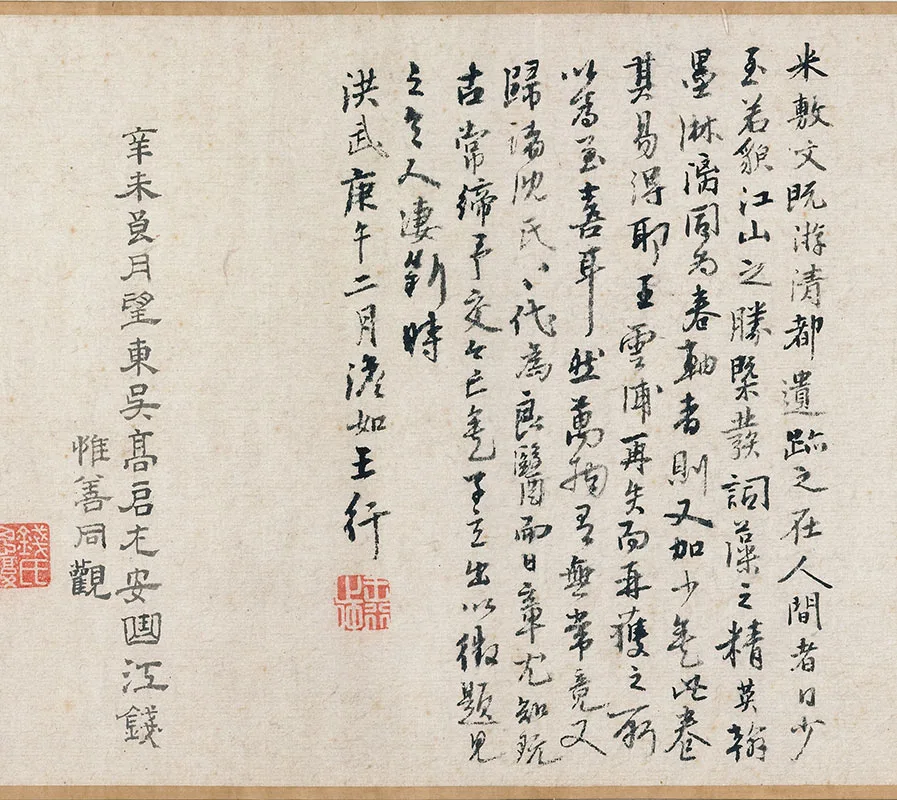 米敷文既游清都遺跡之在人間者日少
至若貌江山之勝槩發詞藻之精英翰
墨淋漓同為卷軸者則又加少焉此卷
其易得耶王雲浦再失而再獲之所
以為至喜耳然萬物有無常竟又
歸諸沈氏八代為良醫而日章尤知玩
古常締予交今亡矣子立出以徵題見
之令人淒斷時
洪武庚午二月澹如王行
王行止仲
辛未良月望東吳高启尤安曲江錢
惟善同觀